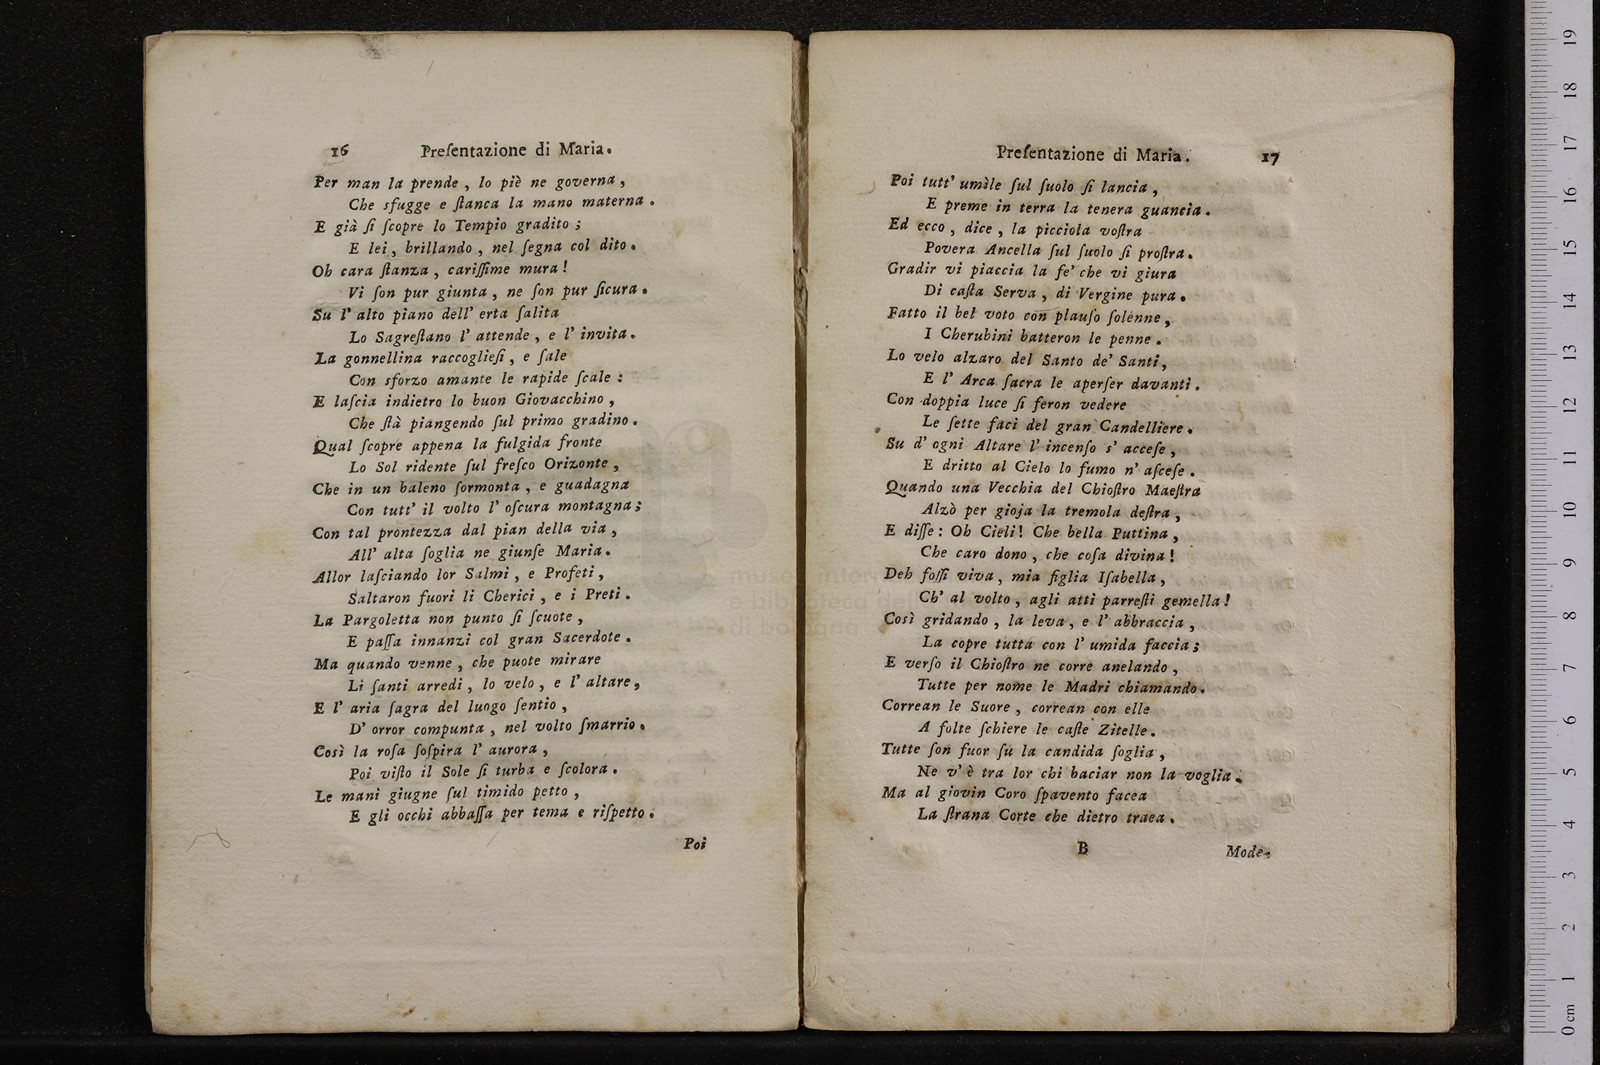 16 Preſentazione di Maria.
Per man la prende, lo piè ne governa,
Che sfugge e ſtanca la mano materna.
E già ſi ſcopre lo Tempio gradito;
E lei, brillando, nel ſegna col dito.
Oh cara ſtanza, cariſſime mura!
Vi ſon pur giunta, ne ſon pur ſicura.
Su l' alto piano dell' erta ſalita
Lo Sagreſtano l' attende, e l' invita.
La gonnellina raccoglieſi, e ſale
Con sforzo amante le rapide ſcale:
E laſcia indietro lo buon Giovacchino,
Che ſtà piangendo ſul primo gradino.
Qual ſcopre appena la fulgida fronte
Lo Sol ridente ſul freſco Orizonte,
Che in un baleno ſormonta, e guadagna
Con tutt' il volto l' oſcura montagna;
Con tal prontezza dal pian della via,
All' alta ſoglia ne giunſe Maria.
Allor laſciando lor Salmi, e Profeti,
Saltaron fuori li Cherici, e i Preti.
La Pargoletta non punto ſi ſcuote,
E paſſa innanzi col gran Sacerdote.
Ma quando venne, che puote mirare
Li ſanti arredi, lo velo, e l' altare,
E l' aria ſagra del luogo ſentio,
D' orror compunta, nel volto ſmarrio.
Così la roſa ſoſpira l' aurora,
Poi viſto il Sole ſi turba e ſcolora.
Le mani giugne ſul timido petto,
E gli occhi abbaſſa per tema e riſpetto.
Poi
Preſentazione di Maria. 17
Poi tutt' umìle ſul ſuolo ſi lancia,
E preme in terra la tenera guancia.
Ed ecco, dice, la picciola voſtra
Povera Ancella ſul ſuolo ſi proſtra.
Gradir vi piaccia la fe' che vi giura
Di caſta Serva, di Vergine pura.
Fatto il bel voto con plauſo ſolenne,
I Cherubini batteron le penne.
Lo velo alzaro del Santo de' Santi,
E l' Arca ſacra le aperſer davanti.
Con doppia luce ſi feron vedere
Le ſette faci del gran Candelliere.
Su d' ogni Altare l' incenſo s' acceſe,
E dritto al Cielo lo fumo n' aſceſe.
Quando una Vecchia del Chioſtro Maeſtra
Alzò per gioja la tremola deſtra,
E diſſe: Oh Cieli! Che bella Puttina,
Che caro dono, che coſa divina!
Deh foſſi viva, mia figlia Iſabella,
Ch' al volto, agli atti parreſti gemella!
Così gridando, la leva, e l' abbraccia,
La copre tutta con l' umida faccia;
E verſo il Chioſtro ne corre anelando,
Tutte per nome le Madri chiamando.
Correan le Suore, correan con elle
A folte ſchiere le caſte Zitelle.
Tutte ſon fuor ſu la candida ſoglia,
Ne v' è tra lor chi baciar non la voglia.
Ma al giovin Coro ſpavento facea
La ſtrana Corte che dietro traea.
B Mode-
0 cm 1 2 3 4 5 6 7 8 9 10 11 12 13 14 15 16 17 18 19